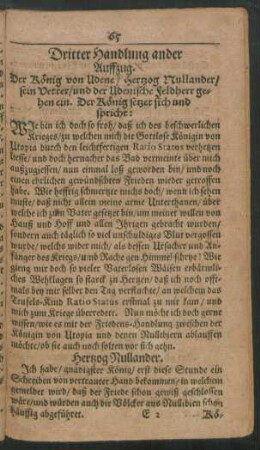 65
Dritter Handlung ander
Auffzug.
Der König von Udene / Hertzog Nullander /
sein Vetter / und der Udenische Feldherr ge-
hen ein. Der König setzet sich und
spricht:
WIe bin ich doch so froh / daß ich des beschwerlichen
Krieges / zu welchen mich die Gottlose Königin von
Utopia durch den leichtfertigen Ratio Status verhetzen
liesse / und doch hernacher das Bad vermeinte über mich
außzugiessen / nun einmal loß geworden bin / und noch
einen ehrlichen gewündschten Frieden wieder getroffen
habe. Wie hefftig schmertzte michs doch / wenn ich sehen
muste / daß nicht allein meine arme Unterthanen / über
welche ich zum Vater gesetzet bin / um meiner willen von
Hauß und Hoff und allen Ihrigen gebracht wurden /
sondern auch täglich so viel unschuldiges Blut vergossen
wurde / welchs wider mich / als dessen Ursacher und An-
fänger des Kriegs / und Rache gen Himmel schrye! Wie
gieng mir doch so vieler Vaterlosen Wäisen erbärmli-
ches Wehklagen so starck zu Hertzen / daß ich noch offt-
mals bey mir selber den Tag verfluchte / an welchem das
Teufels-Kind Ratio Status erstmal zu mir kam / und
mich zum Kriege überredete. Nun möcht ich doch gerne
wissen / wie es mit der Friedens-Handlung zwischen der
Königin von Utopia und denen Nullibiern ablauffen
möchte / ob sie auch noch solten vor sich gehn.
Hertzog Nullander.
Ich habe / gnädigster König / erst diese Stunde ein
Schreiben von vertrauter Hand bekommen / in welchem
gemeldet wird / daß der Friede schon gewiß geschlossen
wär / und würden auch die Völcker aus Nullibien schon
häuffig abgeführet. E 2 Kö.